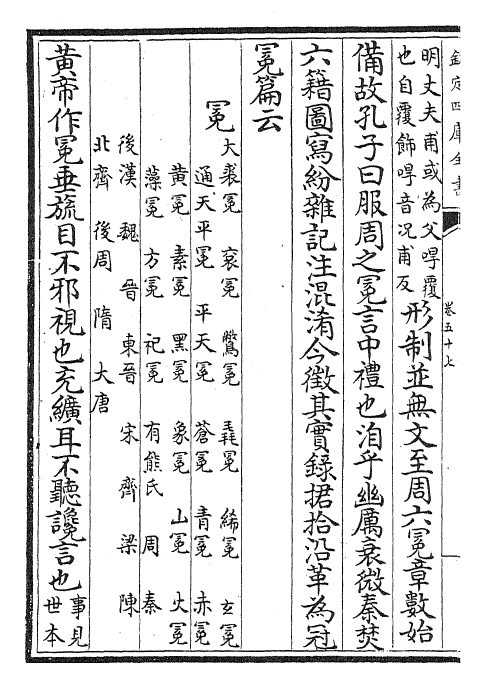 欽定四庫全書 卷五十七
明丈夫甫或為父冔覆
也自覆飾冔音况甫反
形制並無文至周六冕章數始
備故孔子曰服周之冕言中禮也洎乎幽厲衰微秦焚
六籍圖寫紛雜記注混淆今徵其實錄捃拾沿革為冠
冕篇云
冕
大裘冕 衮冕 鷩冕 毳冕 絺冕 玄冕
通天平冕 平天冕 蒼冕 青冕 赤冕
黄冕 素冕 黑冕 象冕 山冕 火冕
藻冕 方冕 祀冕 有熊氏 周 秦
後漢 魏 晉 東晉 宋 齊 梁 陳
北齊 後周 隋 大唐
黄帝作冕垂旒目不邪視也充纊耳不聽讒言也
事見
世本